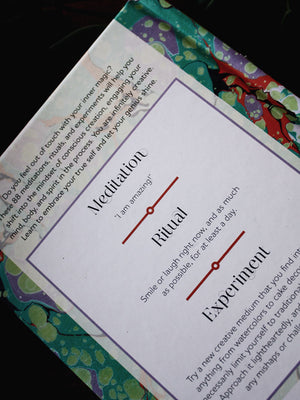 Do you feel out of touch with your inner magic?
These 88 meditations, rituals, and experiments will help you
shift into the mindset of conscious creation, engaging your
mind, body, and spirit in the process. You are infinitely creative.
Learn to embrace your true self and let your genius shine.
Meditation
"I am amazing!"
Ritual
Smile or laugh right now, and as much
as possible, for at least a day.
Experiment
Try a new creative medium that you find in
anything from watercolors to cake deco
necessarily limit yourself to traditiona
Approach it lightheartedly, an
any mishaps or chal